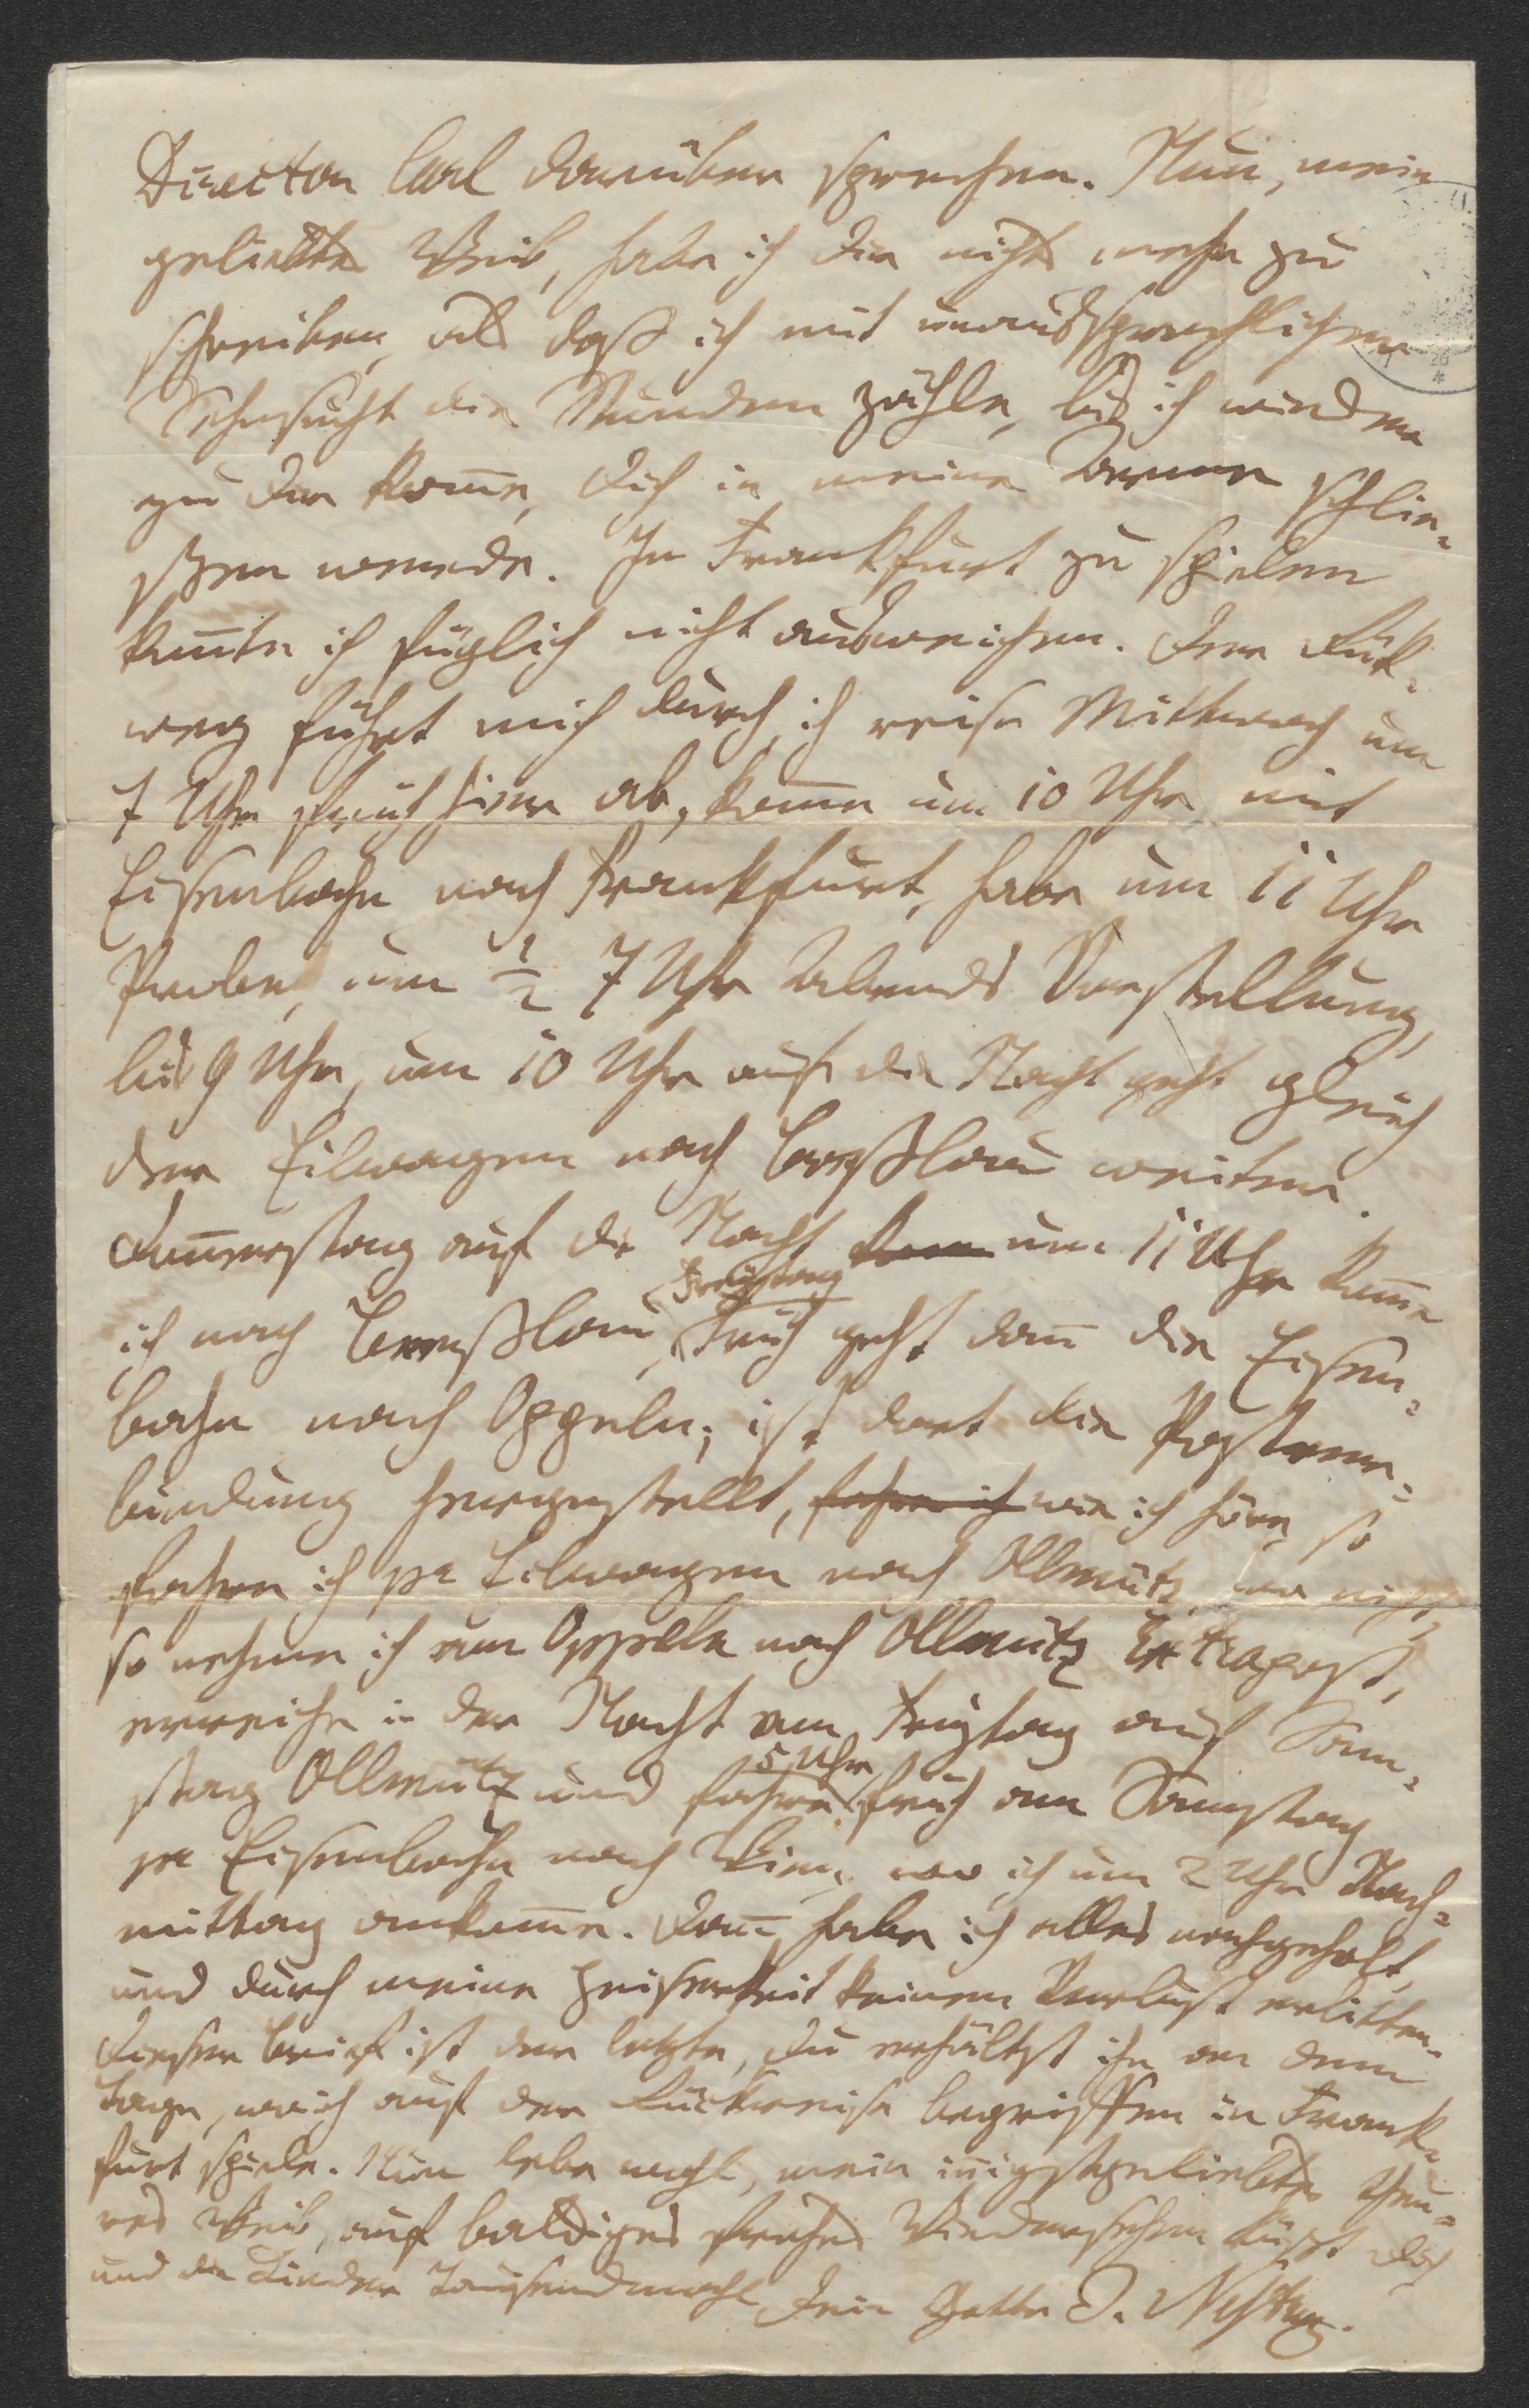 Director Carl darüber sprechen. Nun, mein
geliebtes Weib, habe ich Dir nichts mehr zu
schreiben, als daß ich mit unaussprechlicher
Sehnsucht die Stunden zähle, bis ich wieder
zu Dir kom̅e, Dich in meine Arme schlie-
ßen werde. In Frankfurt zu spielen
kon̅te ich füglich nicht ausweichen. Der Rük-
weg führt mich durch, ich reise Mittwoch um
7 Uhr früh hier ab, kom̅e um 10 Uhr mit
Eisenbahn nach Frankfurt, habe um 11 Uhr
Probe, um ½ 7 Uhr Abends Vorstellung,
bis 9 Uhr, um 10 Uhr auf die Nacht geht gleich
der Eilwagen nach Breßlau weiter.
Don̅erstag auf die Nacht kom um 11 Uhr kom̅e
ich nach Breßlau, Freytag Früh geht dan̅ die Eisen-
bahn nach Oppeln; ist dort die Postver-
bindung hergestellt, fahre ich wie ich höre, so
fahre ich pr Eilwagen nach Ollmütz, wo nicht,
so nehme ich von Oppeln nach Ollmütz Extrapost,
erreiche in der Nacht von Freytag auf Sam-
stag Ollmütz und fahre 5 Uhr früh am Samstag
pr Eisenbahn nach Wien, wo ich um 2 Uhr Nach-
mittag ankom̅e. Dan̅ habe ich alles nachgeholt,
und durch meine Heiserkeit keinen Verlust erlitten.
Dieser Brief ist der letzte, Du erhältst ihn an dem
Tage, wo ich auf der Rückreise begriffen in Frank-
furt spiele. Nun lebe wohl, mein in̅igstgeliebtes theu-
res Weib, auf baldiges frohes Wiedersehen küßt Dich
und die Kinder Tausendmahl Dein Gatte J. Nestroy.